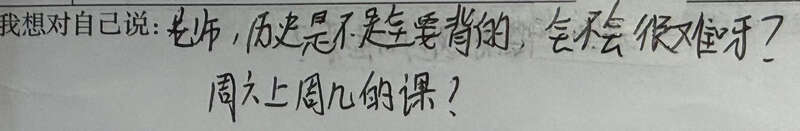 我想对自己说:老师,历史是不是全要背的,会不会很难呀?
周六上周几的课?